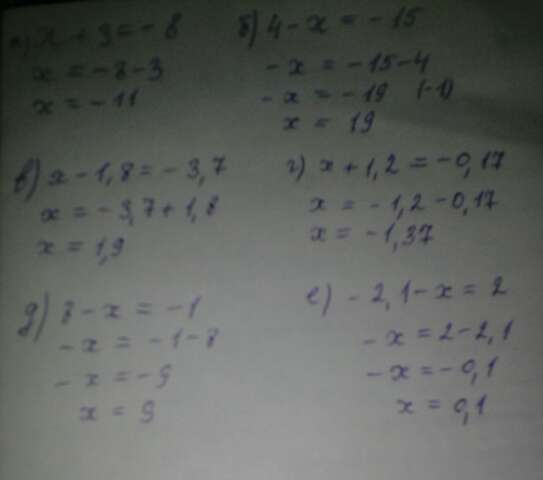 а) x + 3 = - 8
x = - 8 - 3
x = - 11
б) 4 - x = - 15
- x = - 15 - 4
- x = - 19 (-1)
x = 19
в) x - 1,8 = - 3,7
x = - 3,7 + 1,8
x = 1,9
г) x + 1,2 = - 0,17
x = - 1,2 - 0,17
x = - 1,37
д) 8 - x = - 1
- x = - 1 - 8
- x = - 9
x = 9
е) - 2,1 - x = 2
- x = 2 - 2,1
- x = - 0,1
x = 0,1